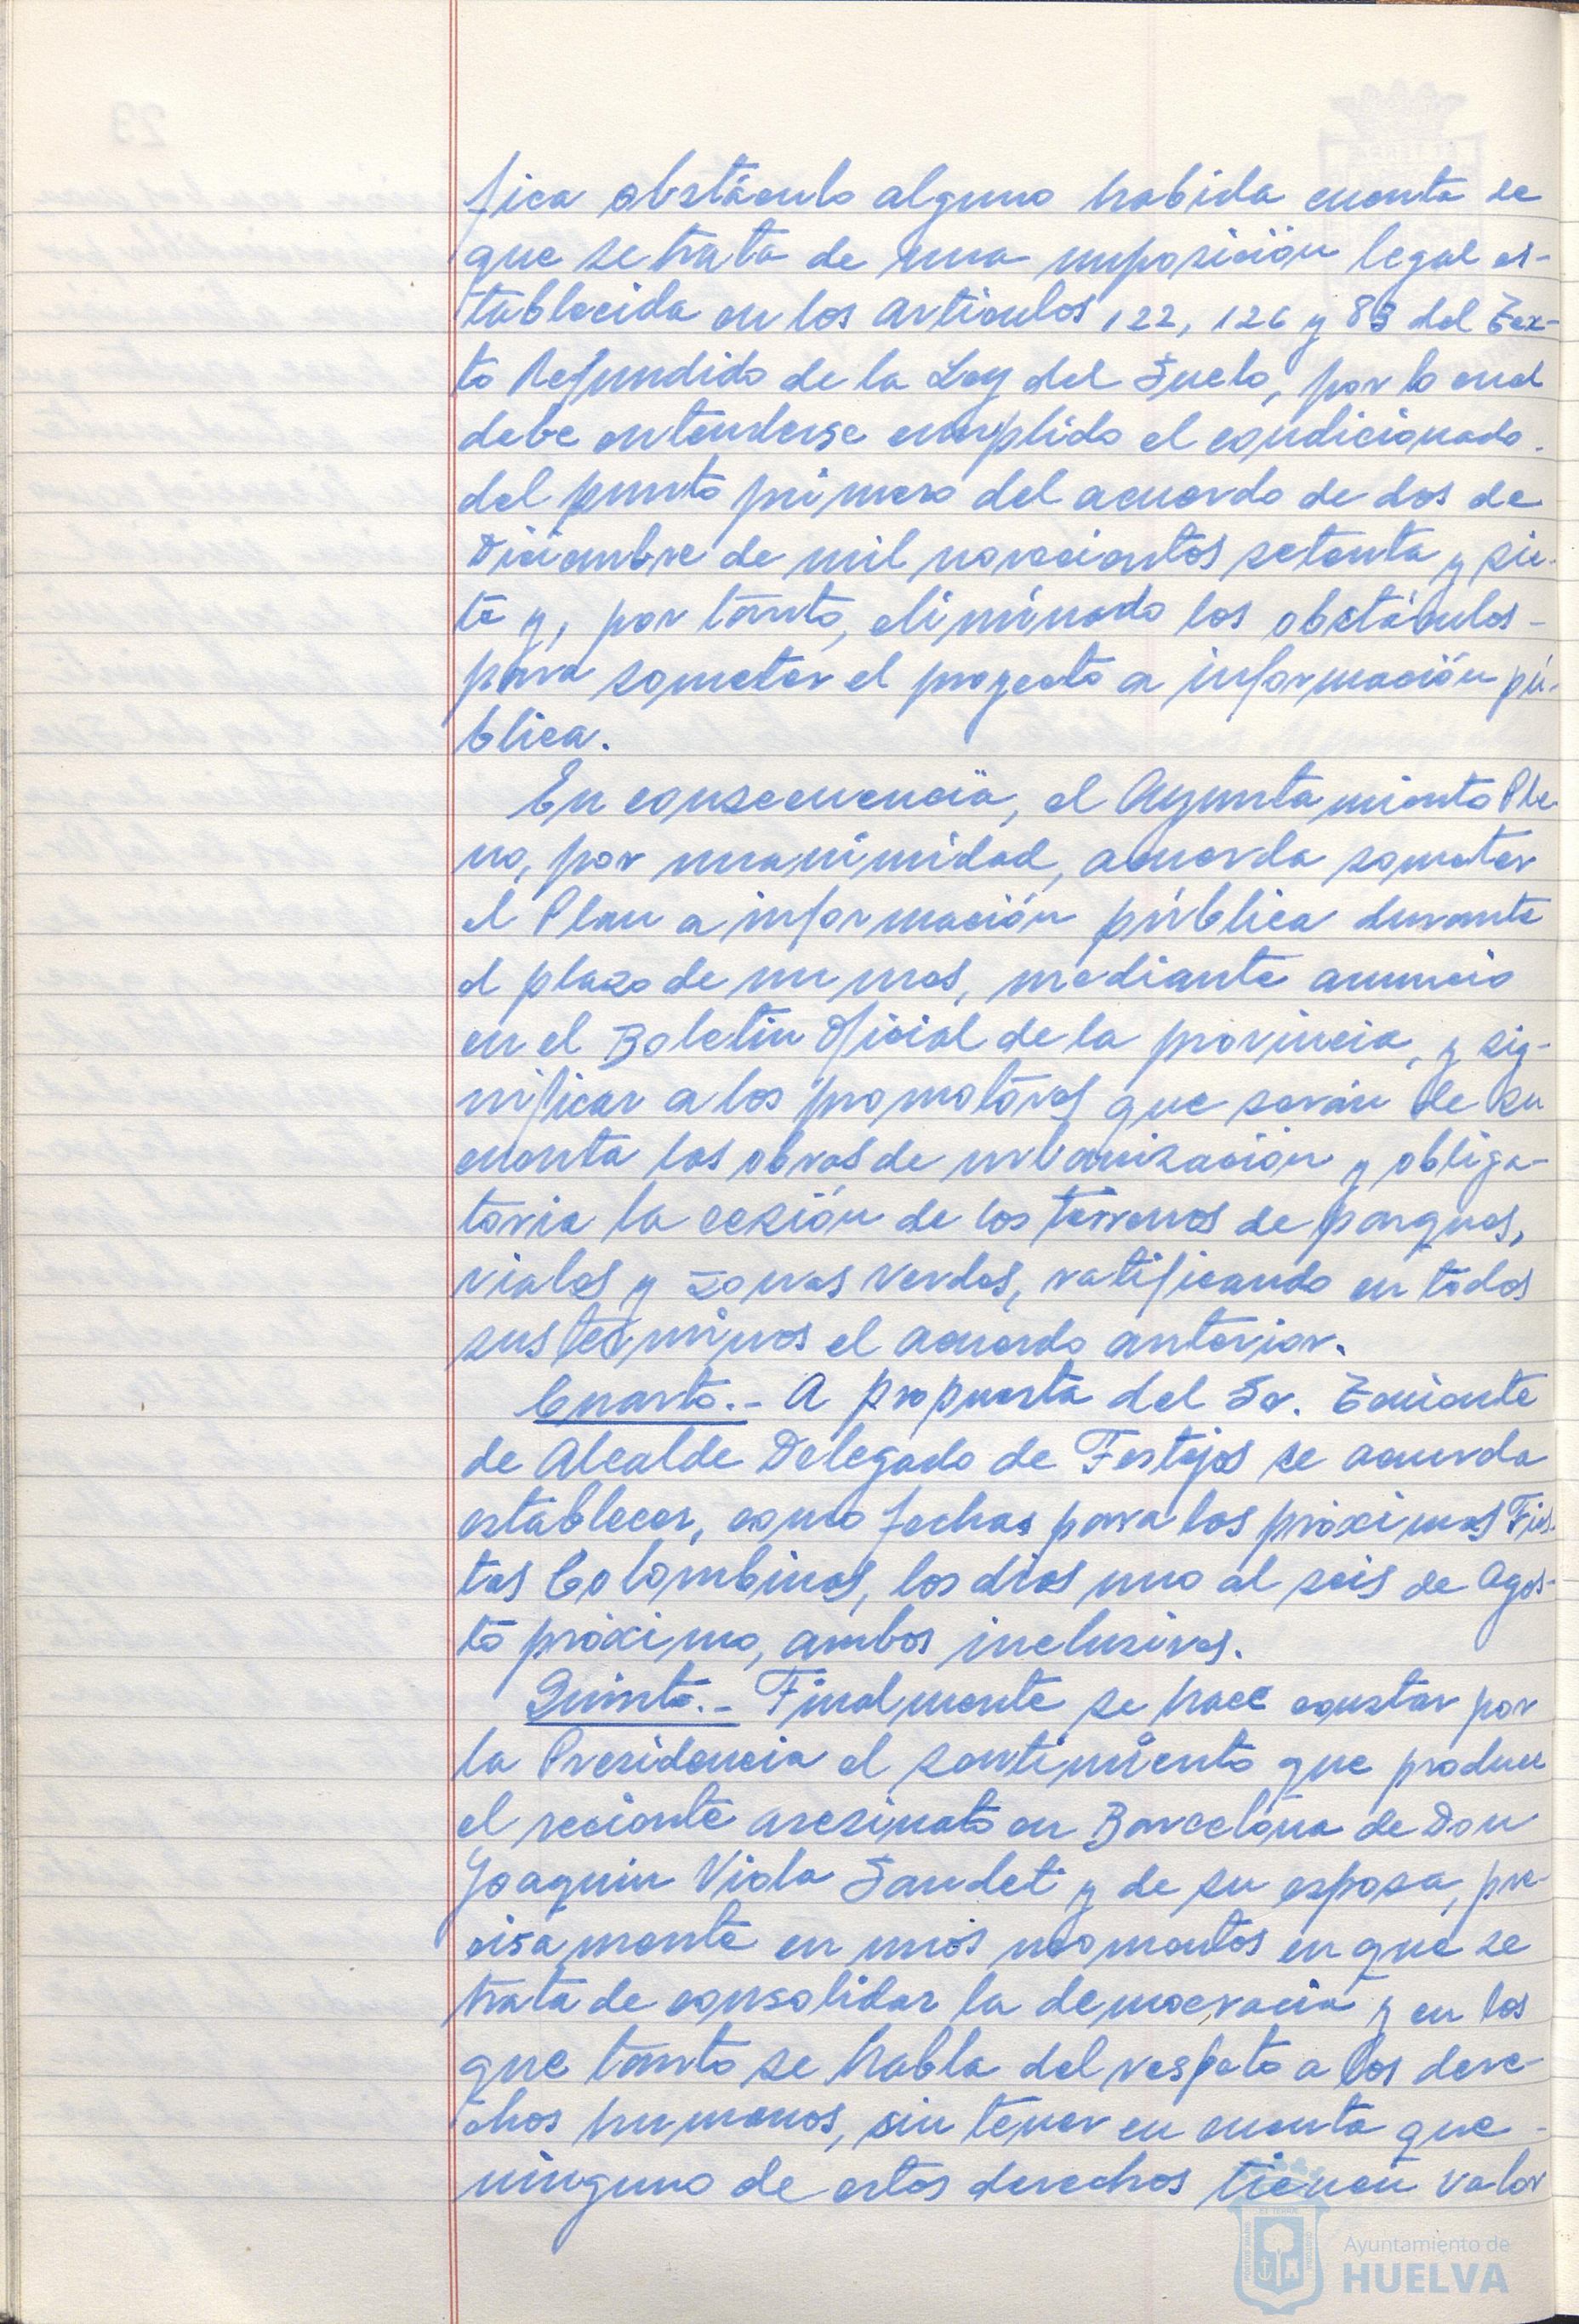 fica obstáculo alguno habida cuenta de
que se trata de una imposición legal es-
tablecida en los artículos 122, 126 y 83 del Tex-
to Refundido de la Ley del Suelo, por lo cual
debe entenderse cumplido el condicionado
del punto primero del acuerdo de dos de
Diciembre de mil novecientos setenta y sie-
te y, por tanto, eliminado los obstáculos -
para someter el proyecto a información pú-
blica.
En consecuencia, el Ayuntamiento Ple-
no, por unanimidad, acuerda someter
el Plan a información pública durante
el plazo de un mes, mediante anuncio
en el Boletín Oficial de la provincia, y sig-
nificar a los promotores que serán de su
cuenta las obras de urbanización y obliga-
toria la cesión de los terrenos de parques,
viales y zonas verdes, ratificando en todos
sus terminos el acuerdo anterior.
Cuarto.- A propuesta del Sr. Teniente
de Alcalde Delegado de Festejos se acuerda
establecer, como fechas para las próximas Fies-
tas Colombinas, los dias uno al seis de Agos-
to próximo, ambos inclusives.
Quinto.- Finalmente se hace constar por
la Presidencia el sentimiento que produce
el reciente asesinato en Barcelona de Don
Joaquin Viola Saudet y de su esposa, pre-
cisamente en unos momentos en que se
trata de consolidar la democracia y en los
que tanto se habla del respeto a los dere-
chos humanos, sin tener en cuenta que -
ninguno de estos derechos tienen valor
Ayuntamiento de
HUELVA